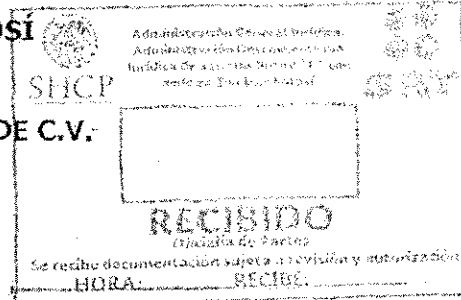 SÍ
Administración General Jurídica
Administración Desconcentrada
Jurídica de
SHCP
SAT
DE C.V.
RECIBIDO
Oficialía de Partes
Se recibe documentación sujeta a revisión y autorización
HORA: RECIBE: